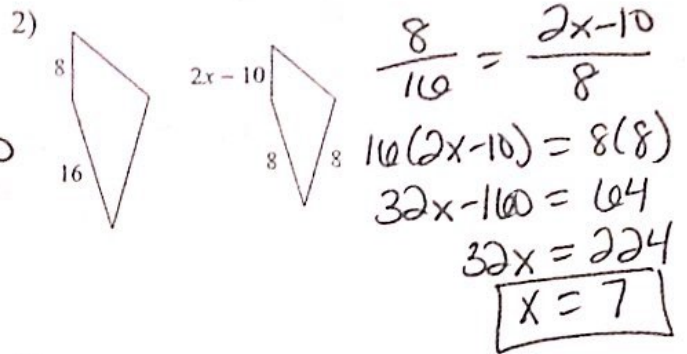 2)
8
16
2x − 10
8
8
8/16 = 2x-10/8
16(2x-10) = 8(8)
32x-160 = 64
32x = 224
x = 7